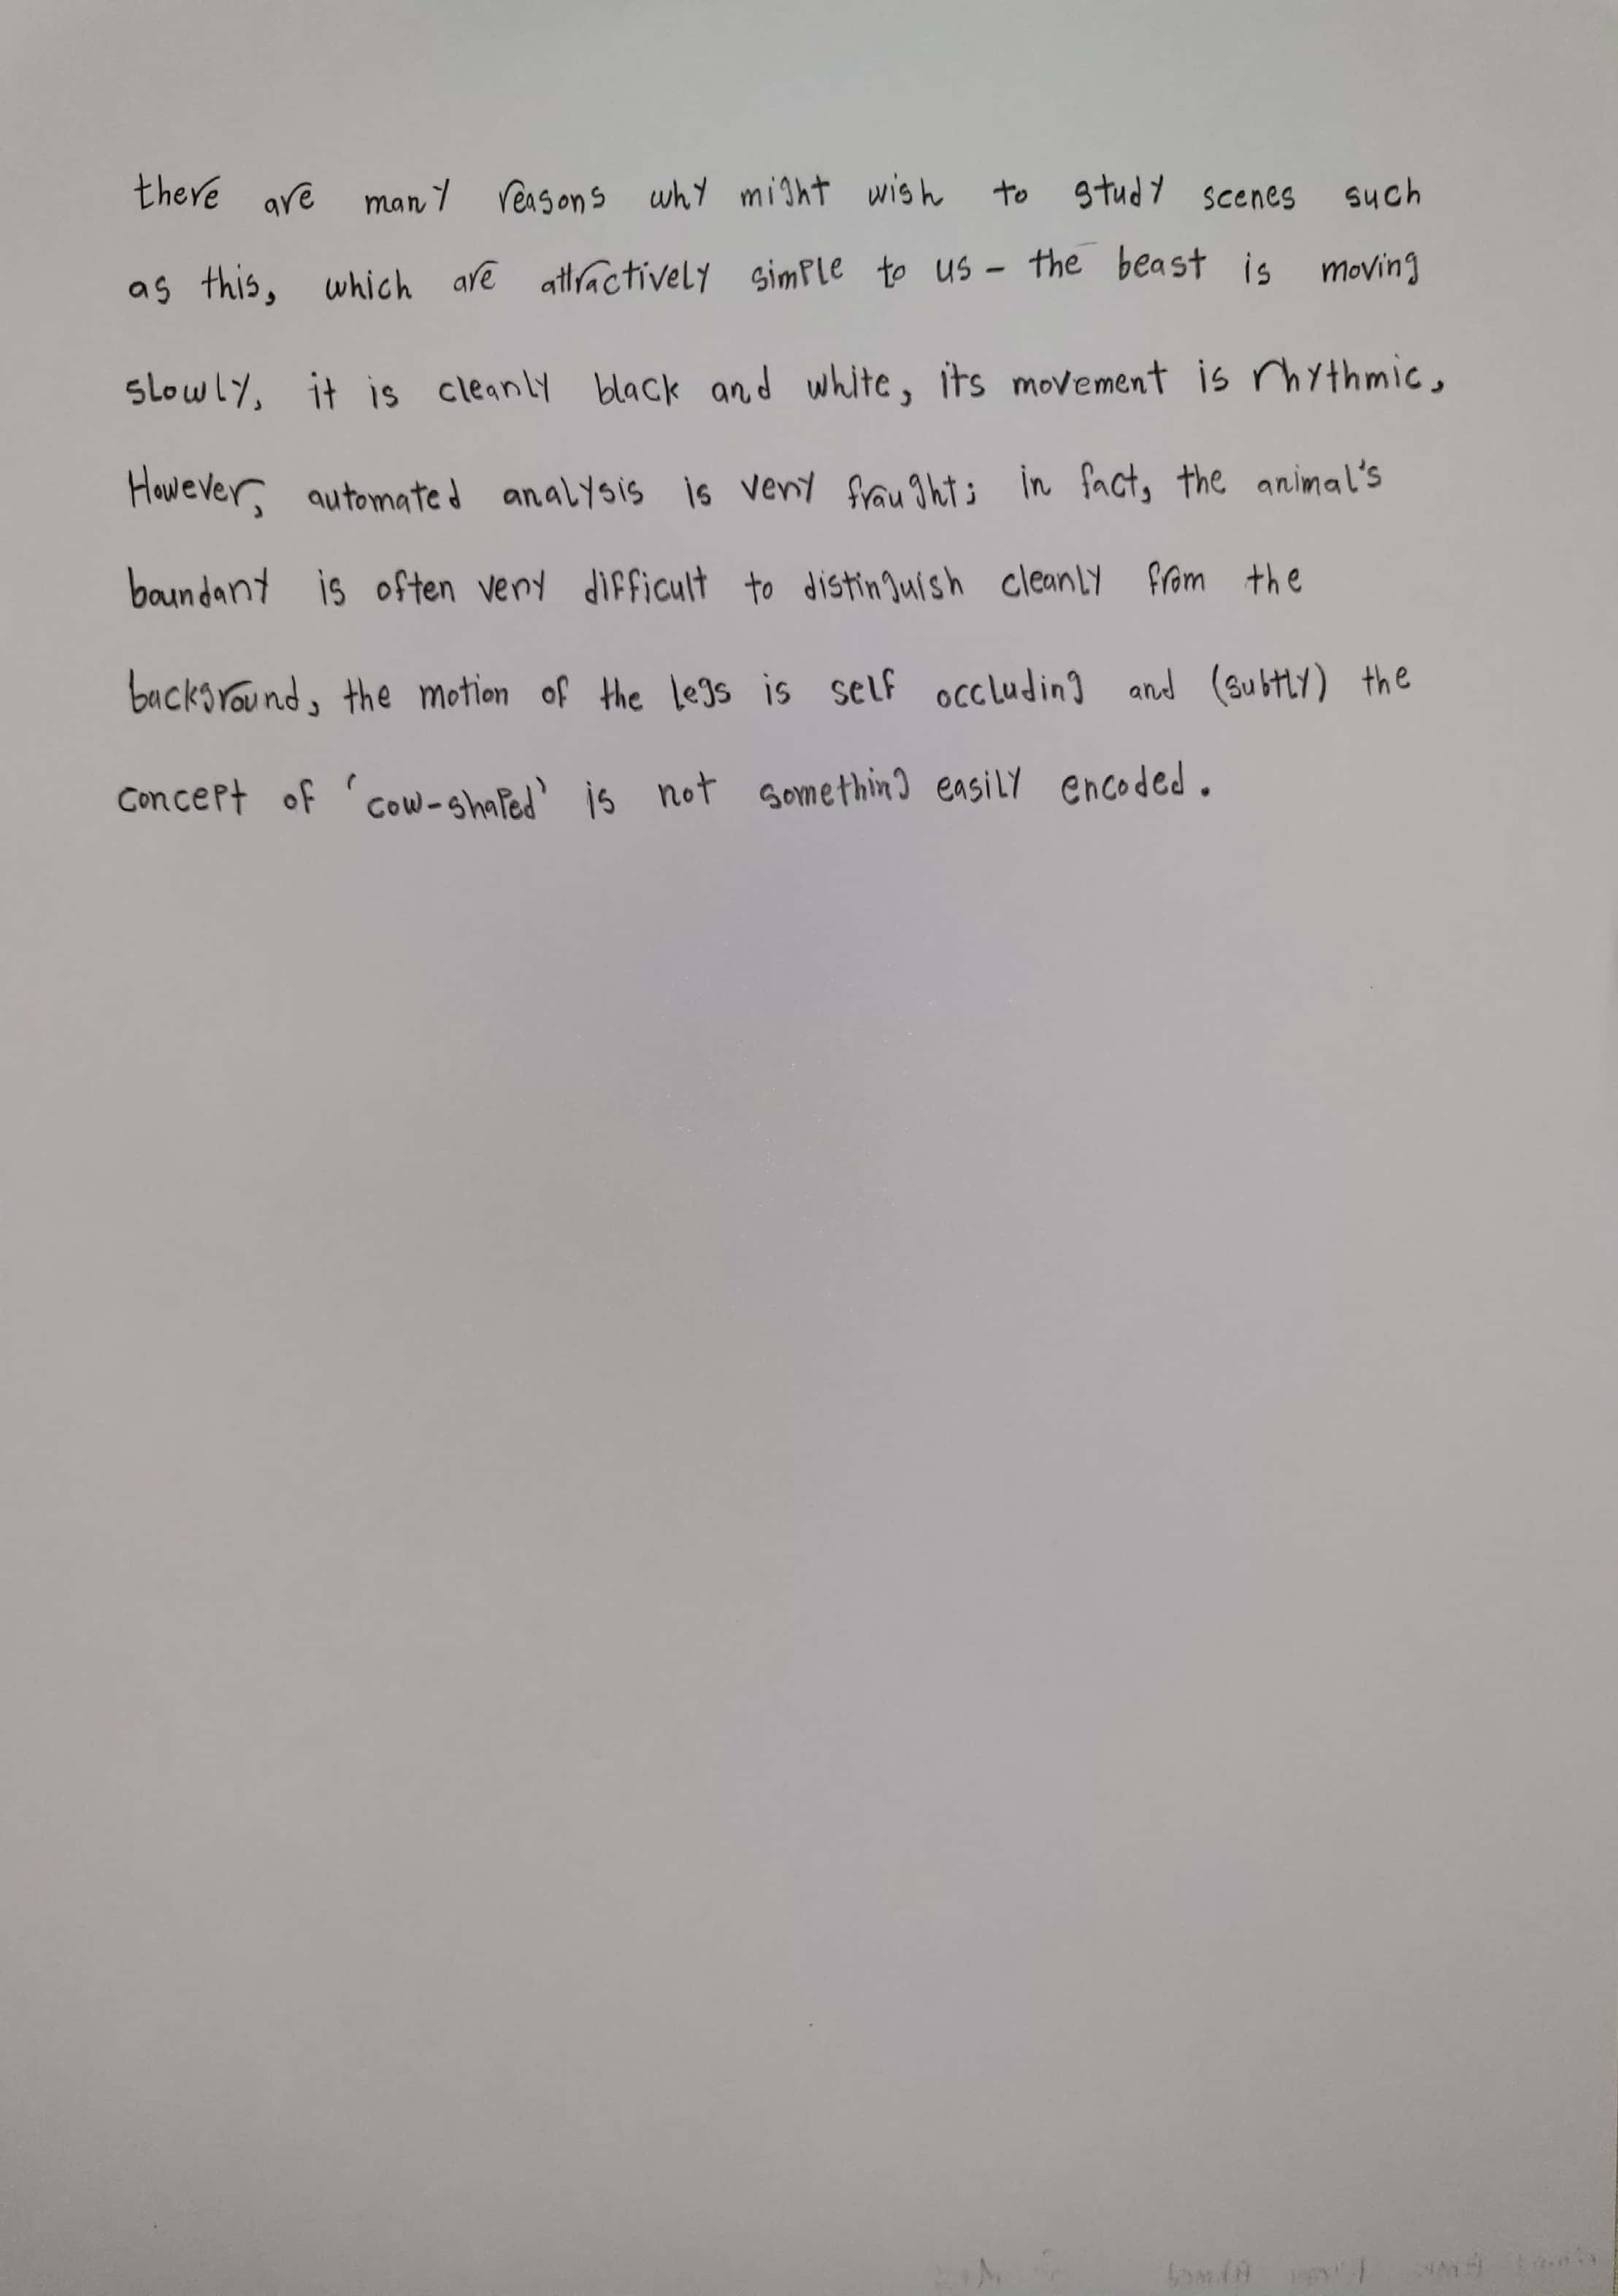 there are many reasons why might wish to study scenes such
as this, which are attractively simple to us - the beast is moving
slowly, it is cleanly black and white, its movement is rhythmic,
However, automated analysis is very fraught; in fact, the animal's
boundary is often very difficult to distinguish cleanly from the
background, the motion of the legs is self occluding and (subtly) the
concept of 'cow-shaped' is not something easily encoded.